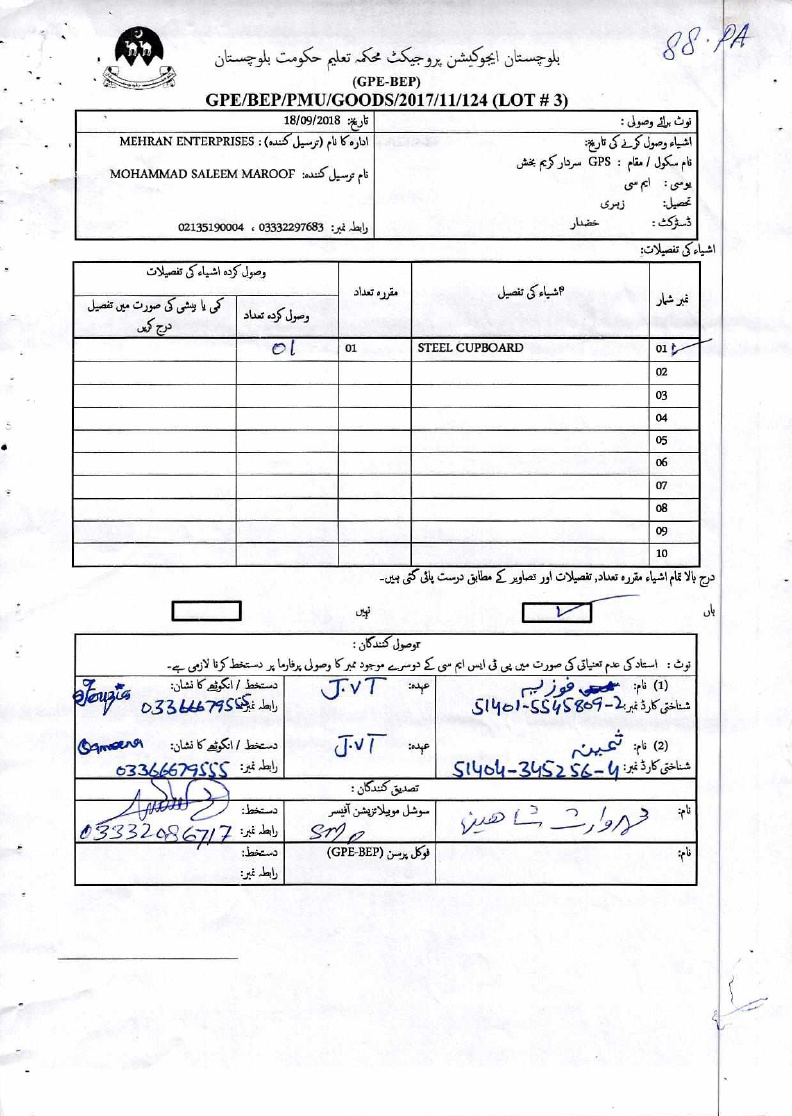 88-PA
بلوچستان ایجوکیشن پروجیکٹ محکمہ تعلیم حکومت بلوچستان
(GPE-BEP)
GPE/BEP/PMU/GOODS/2017/11/124 (LOT # 3)
نوٹ برائے وصولی :
اشیاء وصول کرنے کی تاریخ:
نام سکول / مقام : GPS سردار کریم بخش
یوسی : ایم سی
تحصیل: زہری
ڈسٹرکٹ : خضدار
تاریخ: 18/09/2018
ادارہ کا نام (ترسیل کنندہ) : MEHRAN ENTERPRISES
نام ترسیل کنندہ: MOHAMMAD SALEEM MAROOF
رابطہ نمبر: 03332297683 ، 02135190004
اشیاء کی تفصیلات:
نمبر شمار اشیاء کی تفصیل مقررہ تعداد وصول کردہ اشیاء کی تفصیلات
وصول کردہ تعداد کمی یا بیشی کی صورت میں تفصیل درج کریں
01 STEEL CUPBOARD 01 01
02
03
04
05
06
07
08
09
10
درج بالا تمام اشیاء مقررہ تعداد, تفصیلات اور تصاویر کے مطابق درست پائی گئی ہیں۔
ہاں نہیں
وصول کنندگان :
نوٹ : استاد کی عدم تعیناتی کی صورت میں پی ٹی ایس ایم سی کے دوسرے موجود ممبر کا وصولی پرفارما پر دستخط کرنا لازمی ہے۔
(1) نام: فوزیہ عہدہ: J.VT دستخط / انگوٹھے کا نشان: Fouzia
شناختی کارڈ نمبر: 51401-5545809-2 رابطہ نمبر: 03366679555
(2) نام: ثمینہ عہدہ: J.VT دستخط / انگوٹھے کا نشان: Sameena
شناختی کارڈ نمبر: 51404-345256-4 رابطہ نمبر: 03366679555
تصدیق کنندگان :
نام: وارث شاھین سوشل موبیلائزیشن آفیسر SMO دستخط:
رابطہ نمبر: 03332086717
نام: فوکل پرسن (GPE-BEP) دستخط:
رابطہ نمبر: